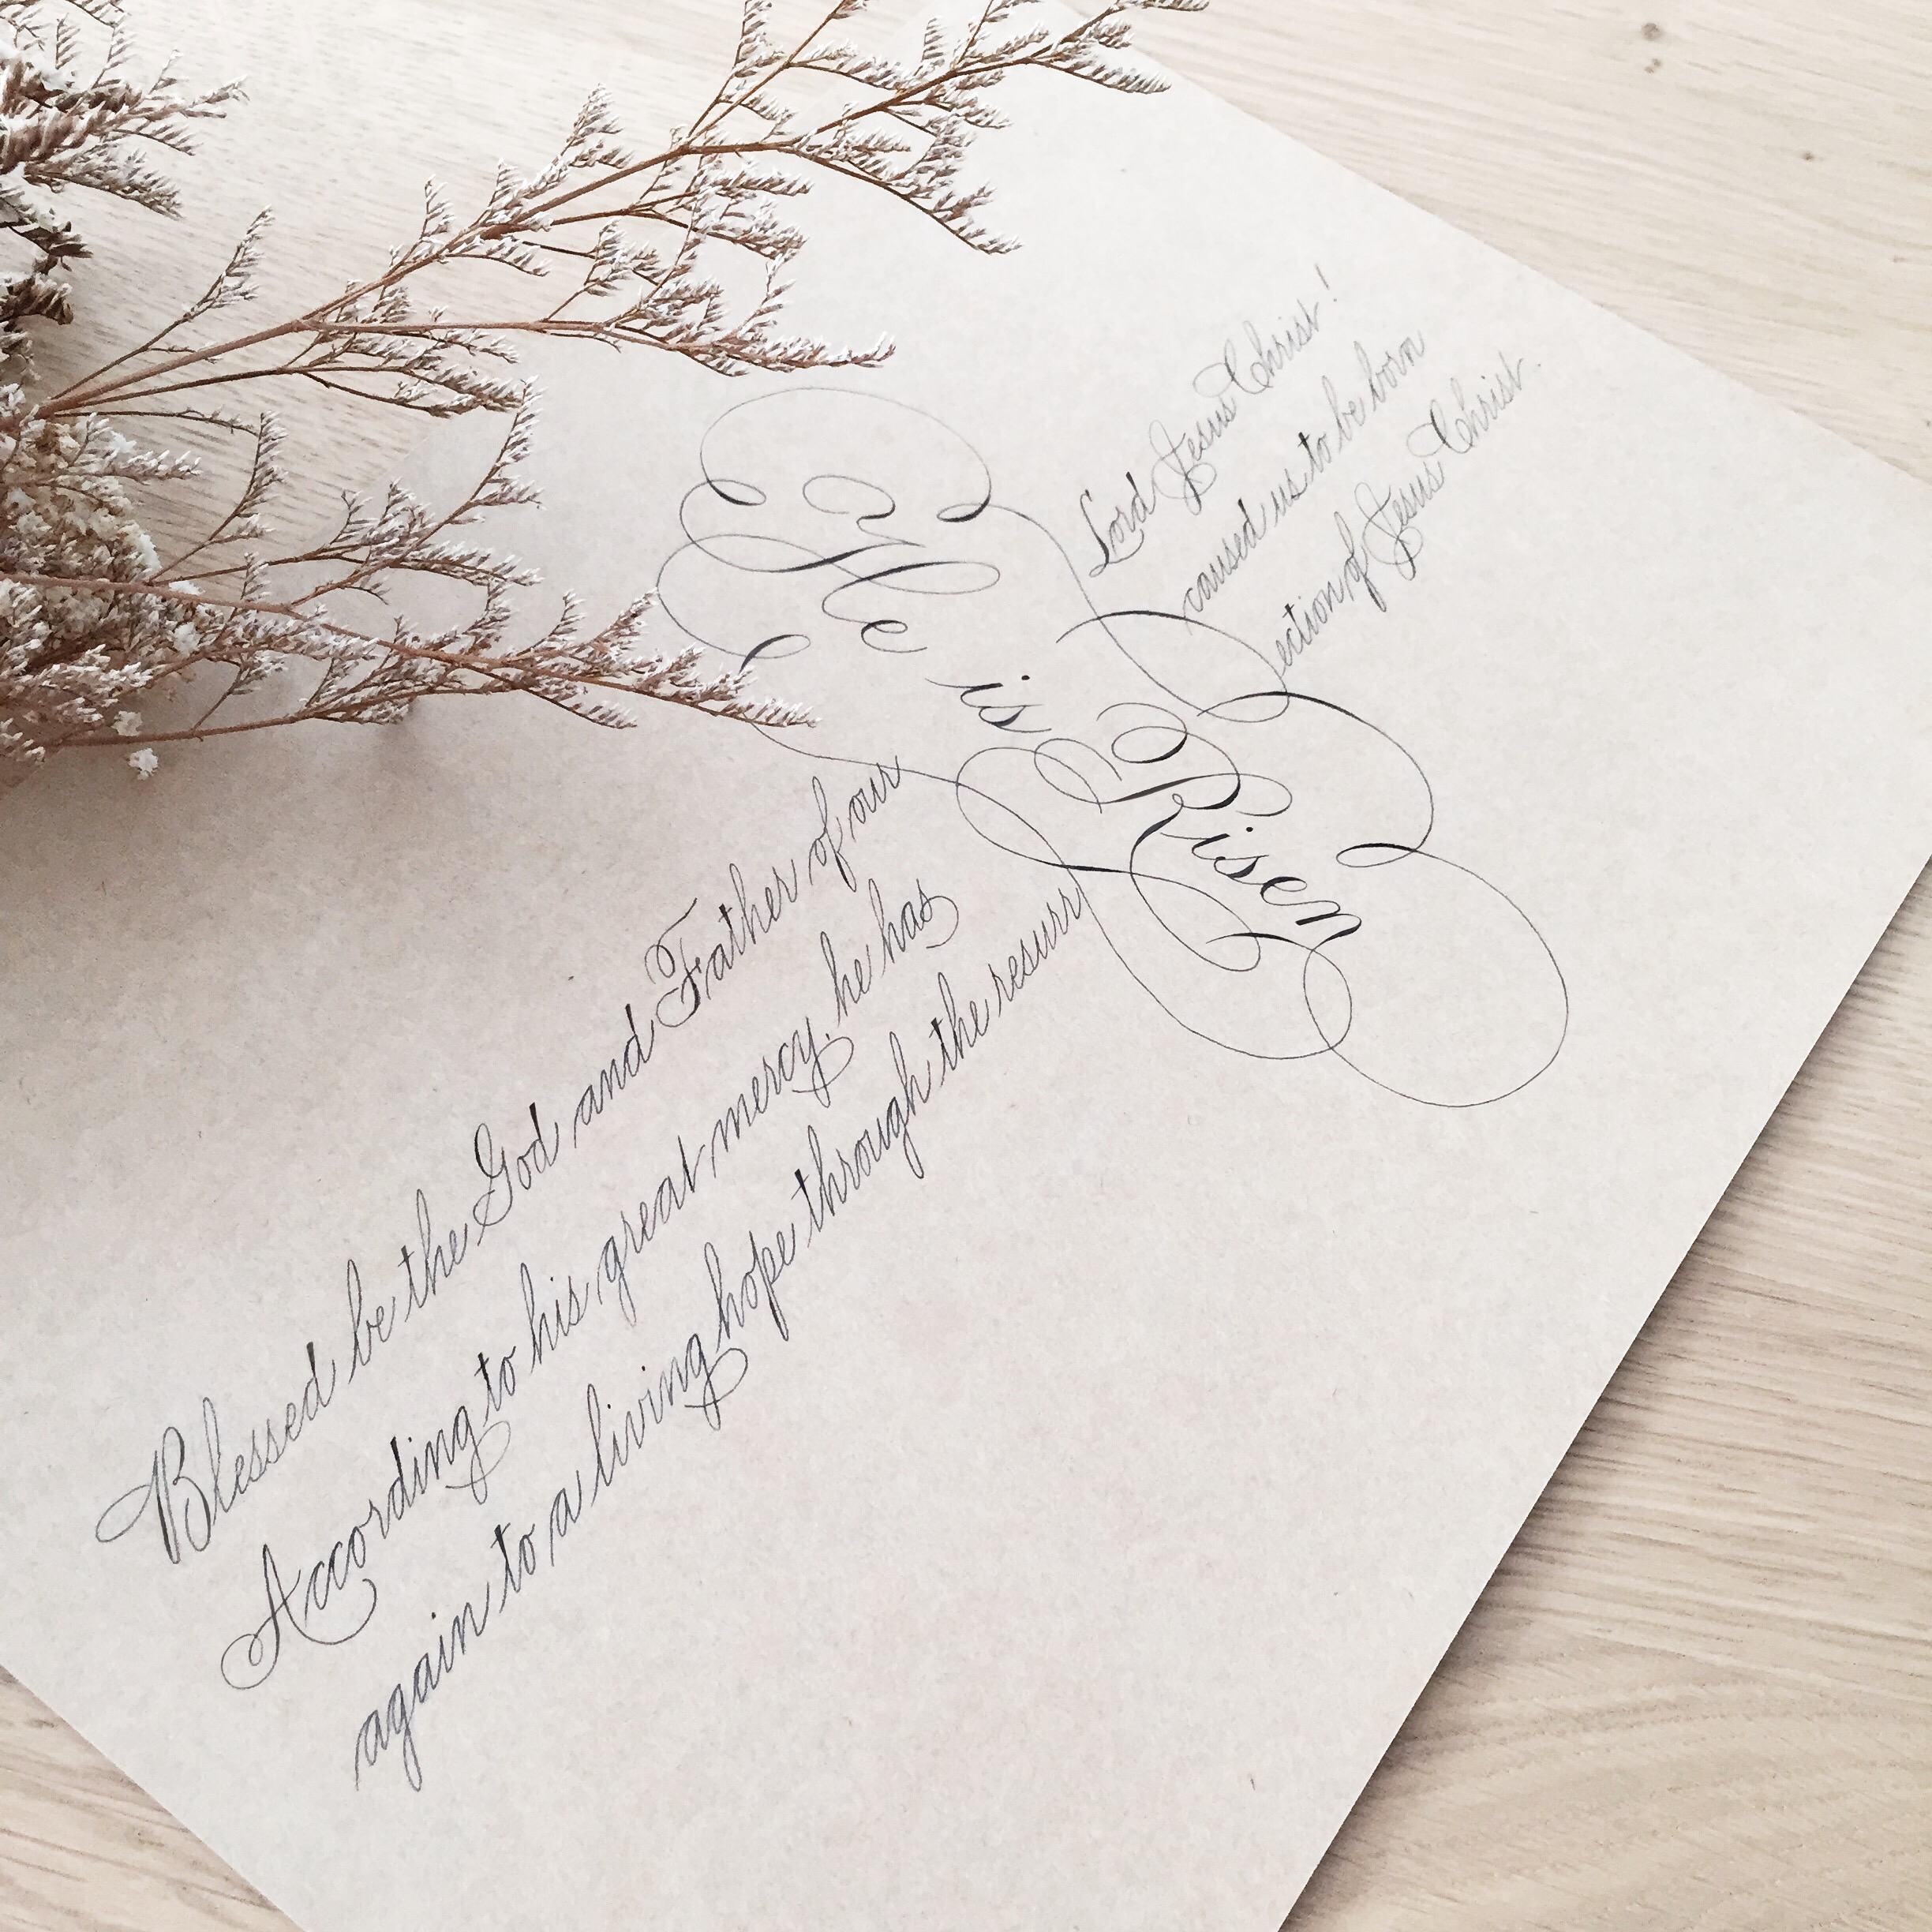 Blessed be the God and Father of our Lord Jesus Christ!
According to his great mercy, he has caused us to be born
again to a living hope through the resurrection of Jesus Christ.
He is
Risen